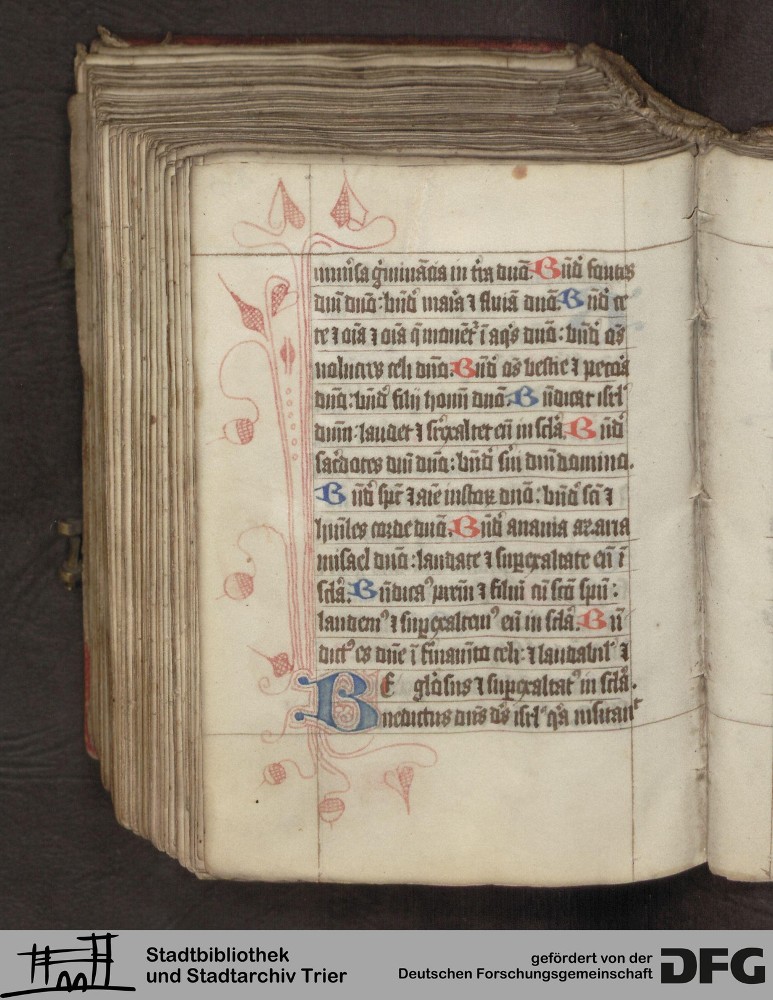 uniu͛sa g͛minācia in t͛ra dnō. Bn̄d͛ fontes
dnī dnō: bn̄d͛ maīa ⁊ flūiā dnō. Bn̄d͛ ce
te ⁊ oīa ⁊ oīa q̄ mouēt᷑ ī aq͛s dnō: bn̄d͛ oēs
uolucres celi dnō. Bn̄d͛ oēs bestie ⁊ pecora
dnō: bn̄d͛ filij hoīm dnō. Bn̄dicat isrl᷑
dnm̄: laudet ⁊ suꝑexaltet eū in sclā. Bn̄d͛
sac͛dotes dnī dnō: bn̄d͛ s͛ui dnī domino.
Bn̄d͛ spc̄ ⁊ aīe iustoꝝ dnō: bn̄d͛ scī ⁊
hūiles corde dnō. Bn̄d͛ anania azaria
misael dnō: laudate ⁊ suꝑexaltate eū ī
sclā. Bn̄dicaꝰ prēm ⁊ filiū cū scō spū:
laudemꝰ ⁊ suꝑexaltemꝰ eū in sclā. Bn̄
dictꝰ es dnē ī firmamēto celi: ⁊ laudabil᷑ ⁊
gl̄osus ⁊ suꝑexaltatꝰ in sclā.
Benedictus dn̄s dēs isrl᷑ q͛a uisitauit
Stadtbibliothek
und Stadtarchiv Trier
gefördert von der
Deutschen Forschungsgemeinschaft
DFG